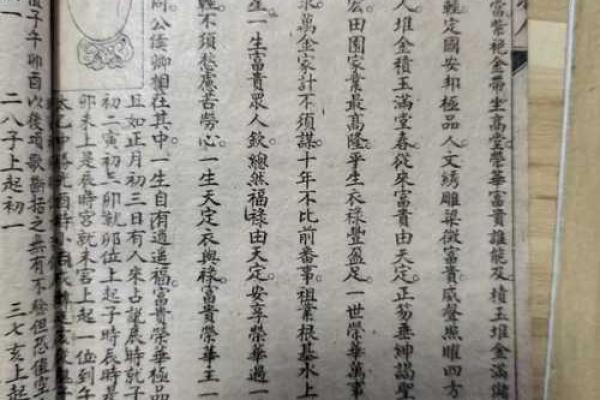 富紫袍金帶坐高堂榮華富貴誰能及積玉堆金滿
輕定國安邦極品人文綉雕梁徵富貴威聲照曜四方
人堆金積玉滿堂春從來富貴由天定正笏垂紳謁聖
宏田園家業最高隆平生衣祿豐盈足一世榮華萬事
求萬金家計不須謀十年不比前番事祖業根基水上
生一生富貴眾人欽總然福祿由天定安享榮華過一
輕不須愁慮苦勞心一生天定衣與祿富貴榮華主一
同公侯卿相在其中一生自有逍遥福富貴榮華極品
且如正月初三日有人來占說辰時就子
初二寅初三卯就卯位上起子時辰時是
卯未上是辰時宮就未宮上起一位到午
子午卯酉以後頌歌斷語之無有不驗但恐值空
一 二八子上起初一 三七亥上起